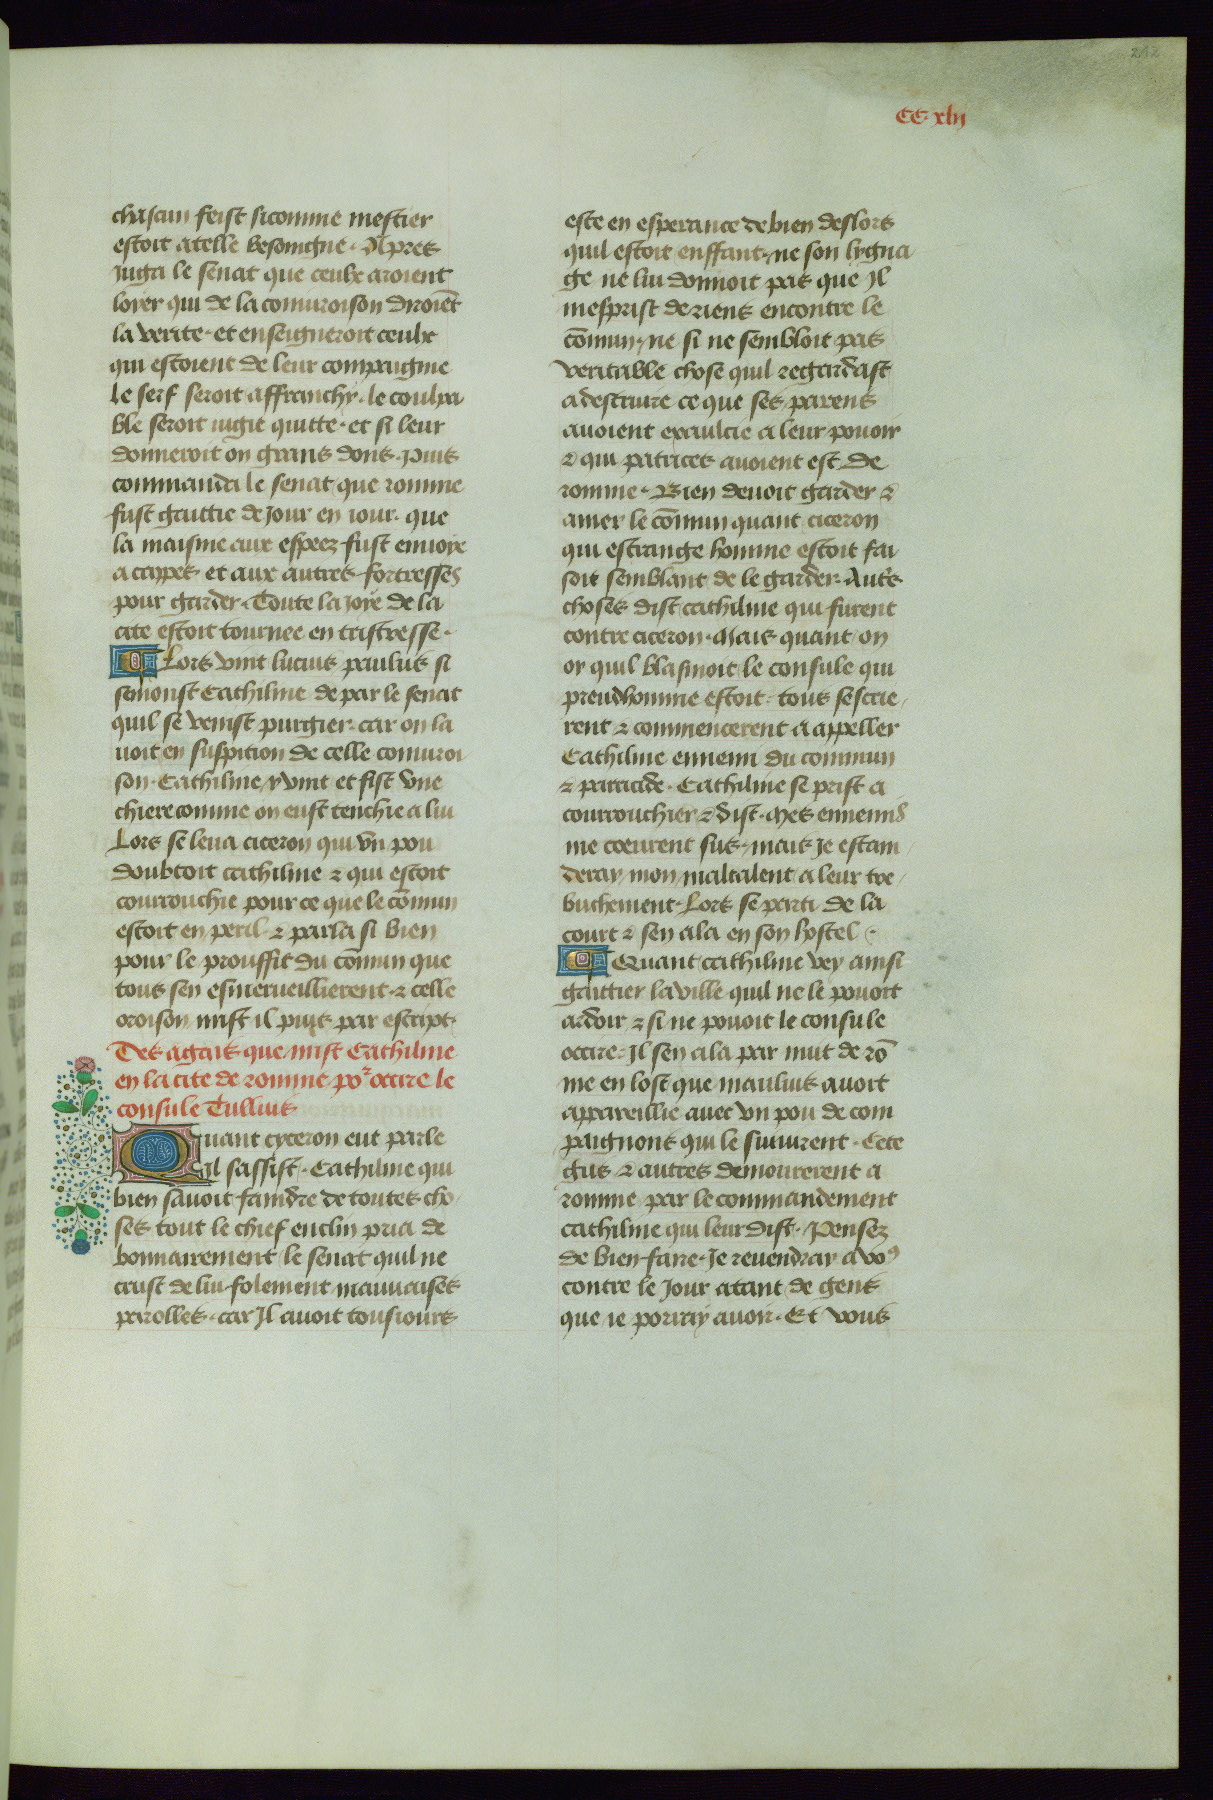 242
CC xlij
chascun feist sicomme mestier
estoit a telle besoingne. Apres
iuga le senat que ceulx aroient
loyer qui de la coniuroison diroiēt
la verite. et enseigneroit ceulx
qui estoient de leur compaignie
le serf seroit affranchy. le coulpa
ble seroit iugie quitte. et si leur
donneroit on grans dons. Puis
commanda le senat que romme
fust gaittie de Jour en iour. que
la maisnie aux espees fust enuoye
a cappes et aux autres fortresses
pour garder. Toute la Joye de la
cite estoit tournee en tristresse.
Lors vint lucius paulus si
semonst Cathiline de par le senat
quil se venist purgier. car on la
uoit en suspition de celle coniuroi
son. Cathiline y vint et fist vne
chiere comme on eust tenchie a lui
Lors se leua ciceron qui vn pou
doubtoit cathiline ⁊ qui estoit
courouchie pour ce que le cōmun
estoit en peril. ⁊ parla si bien
pour le prouffit du cōmun que
tous sen esmerueillierent. ⁊ celle
oroison mist il puis par escript.
Des agais que mist Cathiline
en la cite de romme poʳ occire le
consule Tullius
Quant cyceron eut parle
il sassist. Cathiline qui
bien sauoit faindre de toutes cho
ses tout le chief enclin pria de
bonnairement le senat quil ne
crust de lui folement mauuaises
parolles. car Jl auoit tousiours
este en esperance de bien deslors
quil estoit enffant. ne son lygna
ge ne lui donnoit pas que Jl
mesprist de riens encontre le
cōmun. ne si ne sembloit pas
veritable chose quil regardast
a destruire ce que ses parens
auoient exaulcie a leur pouoir
⁊ qui patrices auoient est de
romme. Bien deuoit garder ⁊
amer le cōmun quant ciceron
qui estrange homme estoit fai
soit semblant de le garder. Autˢ
choses dist cathiline qui furent
contre ciceron. Mais quant on
or quil blasmoit le consule qui
preudhomme estoit. tous sescrie
rent ⁊ commencerent a appeller
Cathiline ennemi du commun
⁊ parricide. Cathiline se prist a
courouchier ⁊ dist. Mes ennemis
me coeurent sus. mais Je estain
deray mon maltalent a leur tre
buchement. Lors se parti de la
court ⁊ sen ala en son hostel.
Quant cathiline vey ainsi
gaittier la ville quil ne le pouoit
ardoir ⁊ si ne pouoit le consule
occire. Jl sen ala par nuit de rō
me en lost que maulius auoit
appareillie auec vn pou de com
paignons qui le suiuirent. Cete
gus ⁊ autres demourerent a
romme par le commandement
cathiline qui leur dist. Pensez
de bien faire. Je reuendray a voꝰ
contre le Jour atant de gens
que ie porray auoir. Et vous